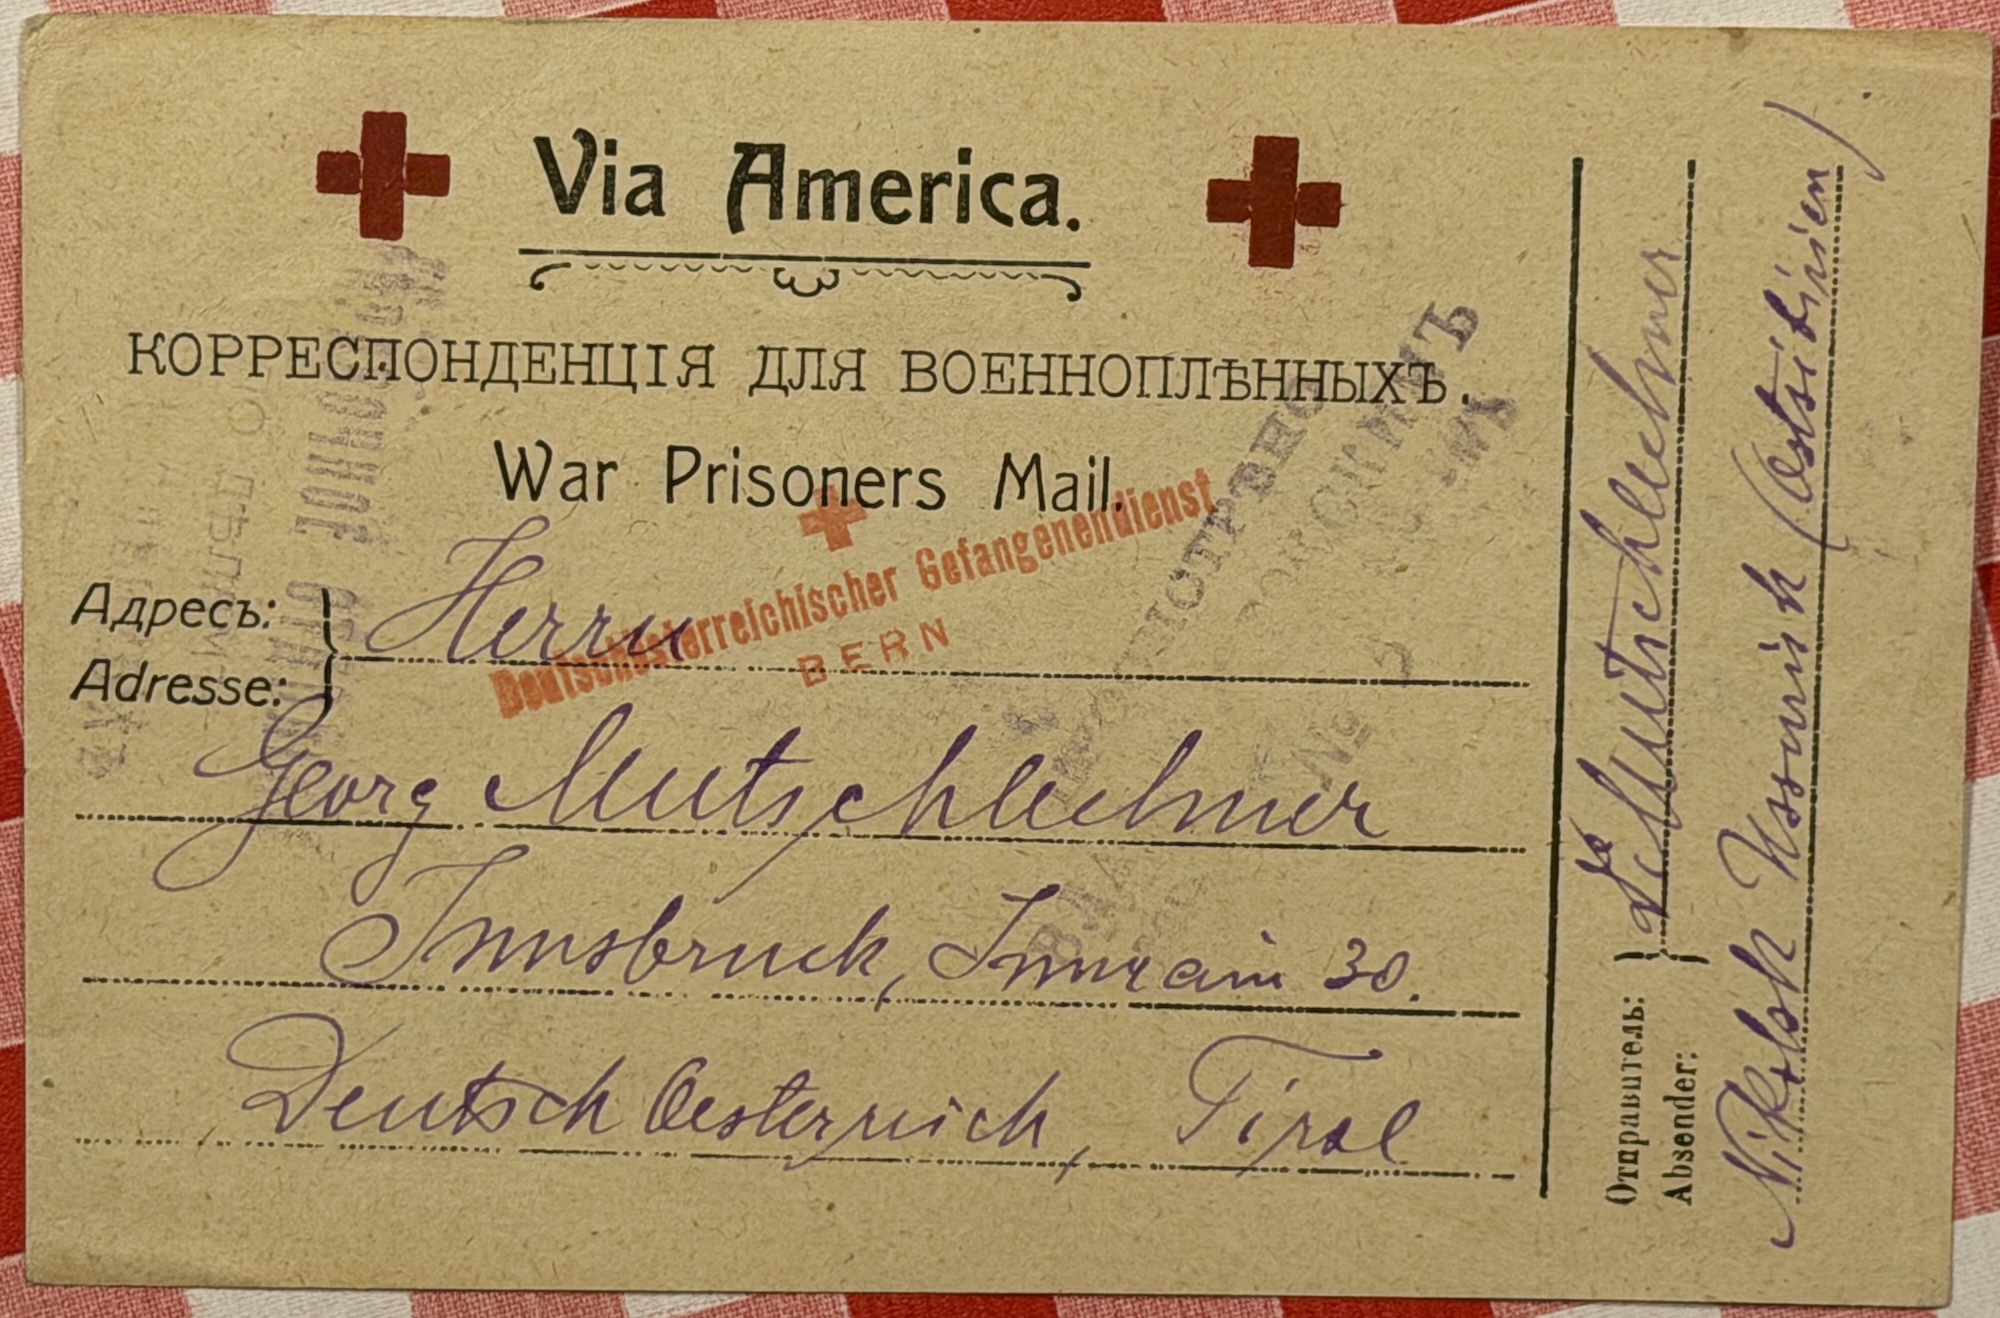 Via America.
КОРРЕСПОНДЕНЦІЯ ДЛЯ ВОЕННОПЛѢННЫХЪ.
War Prisoners Mail.
Deutschösterreichischer Gefangenendienst
BERN
Адресъ:
Adresse:
Herrn
Georg Mutschlechner
Innsbruck, Innrain 30.
Deutsch Oesterreich, Tirol
Отправитель:
Absender:
Mutschlechner
Nikolsk Ussurisk (Ostsibirien)